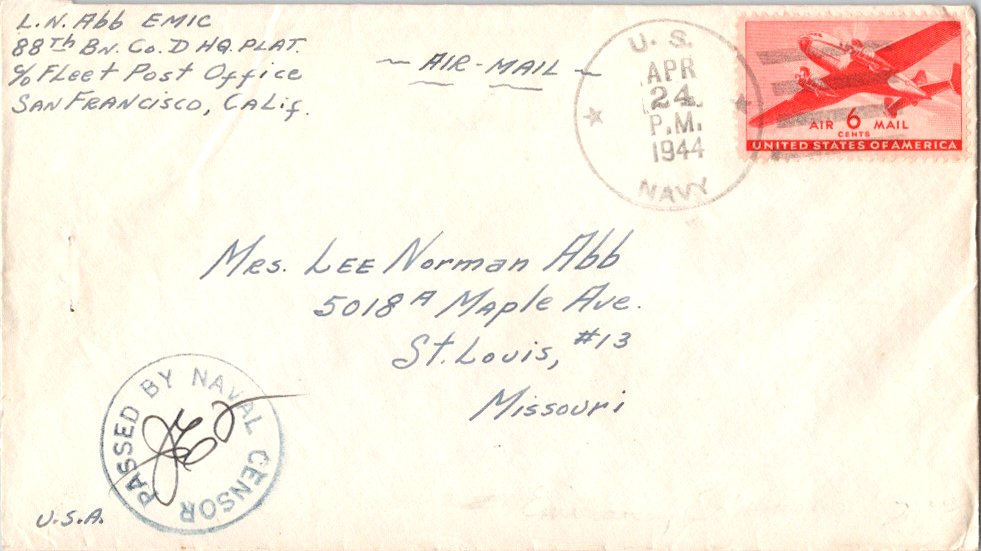 L.N. Abb EMIC
88Th Bn. Co. D HQ. PLAT.
c/o Fleet Post Office
San Francisco, Calif.
~ AIR-MAIL ~
U.S.
APR
24
P.M.
1944
NAVY
AIR 6 MAIL
CENTS
UNITED STATES OF AMERICA
Mrs. Lee Norman Abb
5018A Maple Ave.
St. Louis, #13
Missouri
PASSED BY NAVAL CENSOR
U.S.A.